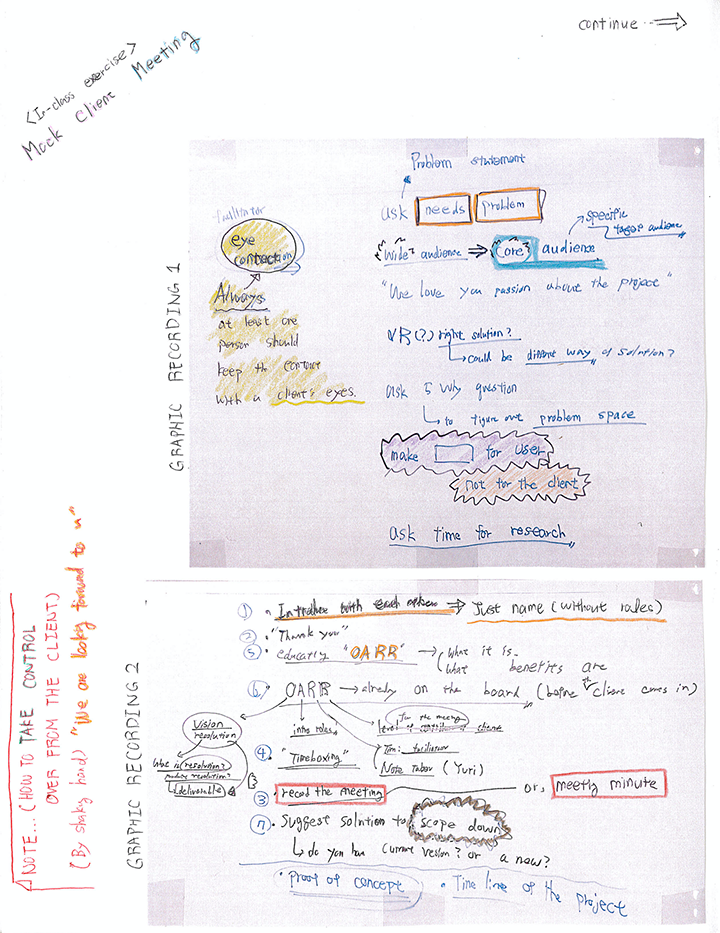 continue
<In-class exercise>
Mock Client Meeting
GRAPHIC RECORDING 1
eye
Always
at least one
person should
keep the
with a client's eyes.
Problem statement
ask needs problem
specific
"Wide" audience ⇒ "Core" audience
"We love you passion about the project"
VR(?) right solution?
could be different way of solution?
ask 5 why question
to figure out problem space
make for user
not for the client
ask time for research
NOTE... (HOW TO TAKE CONTROL
OVER FROM THE CLIENT)
(By shaking hand) "We are looking forward to u"
GRAPHIC RECORDING 2
① · Introduce with each other ⇒ Just name (without roles)
② · "Thank you"
⑤ · "OARR" → what it is
what benefits are
⑥ · OARR → already on the board (before client comes in)
Vision
resolution
intro roles
for the meeting
Tim: facilitator
Note Taker (Yuri)
resolution?
deliverable
④ · "Timeboxing"
③ · record the meeting or, meetly minute
⑦ · Suggest solution to scope down
do you have current version? or a new?
· Proof of concept · Time line of the project